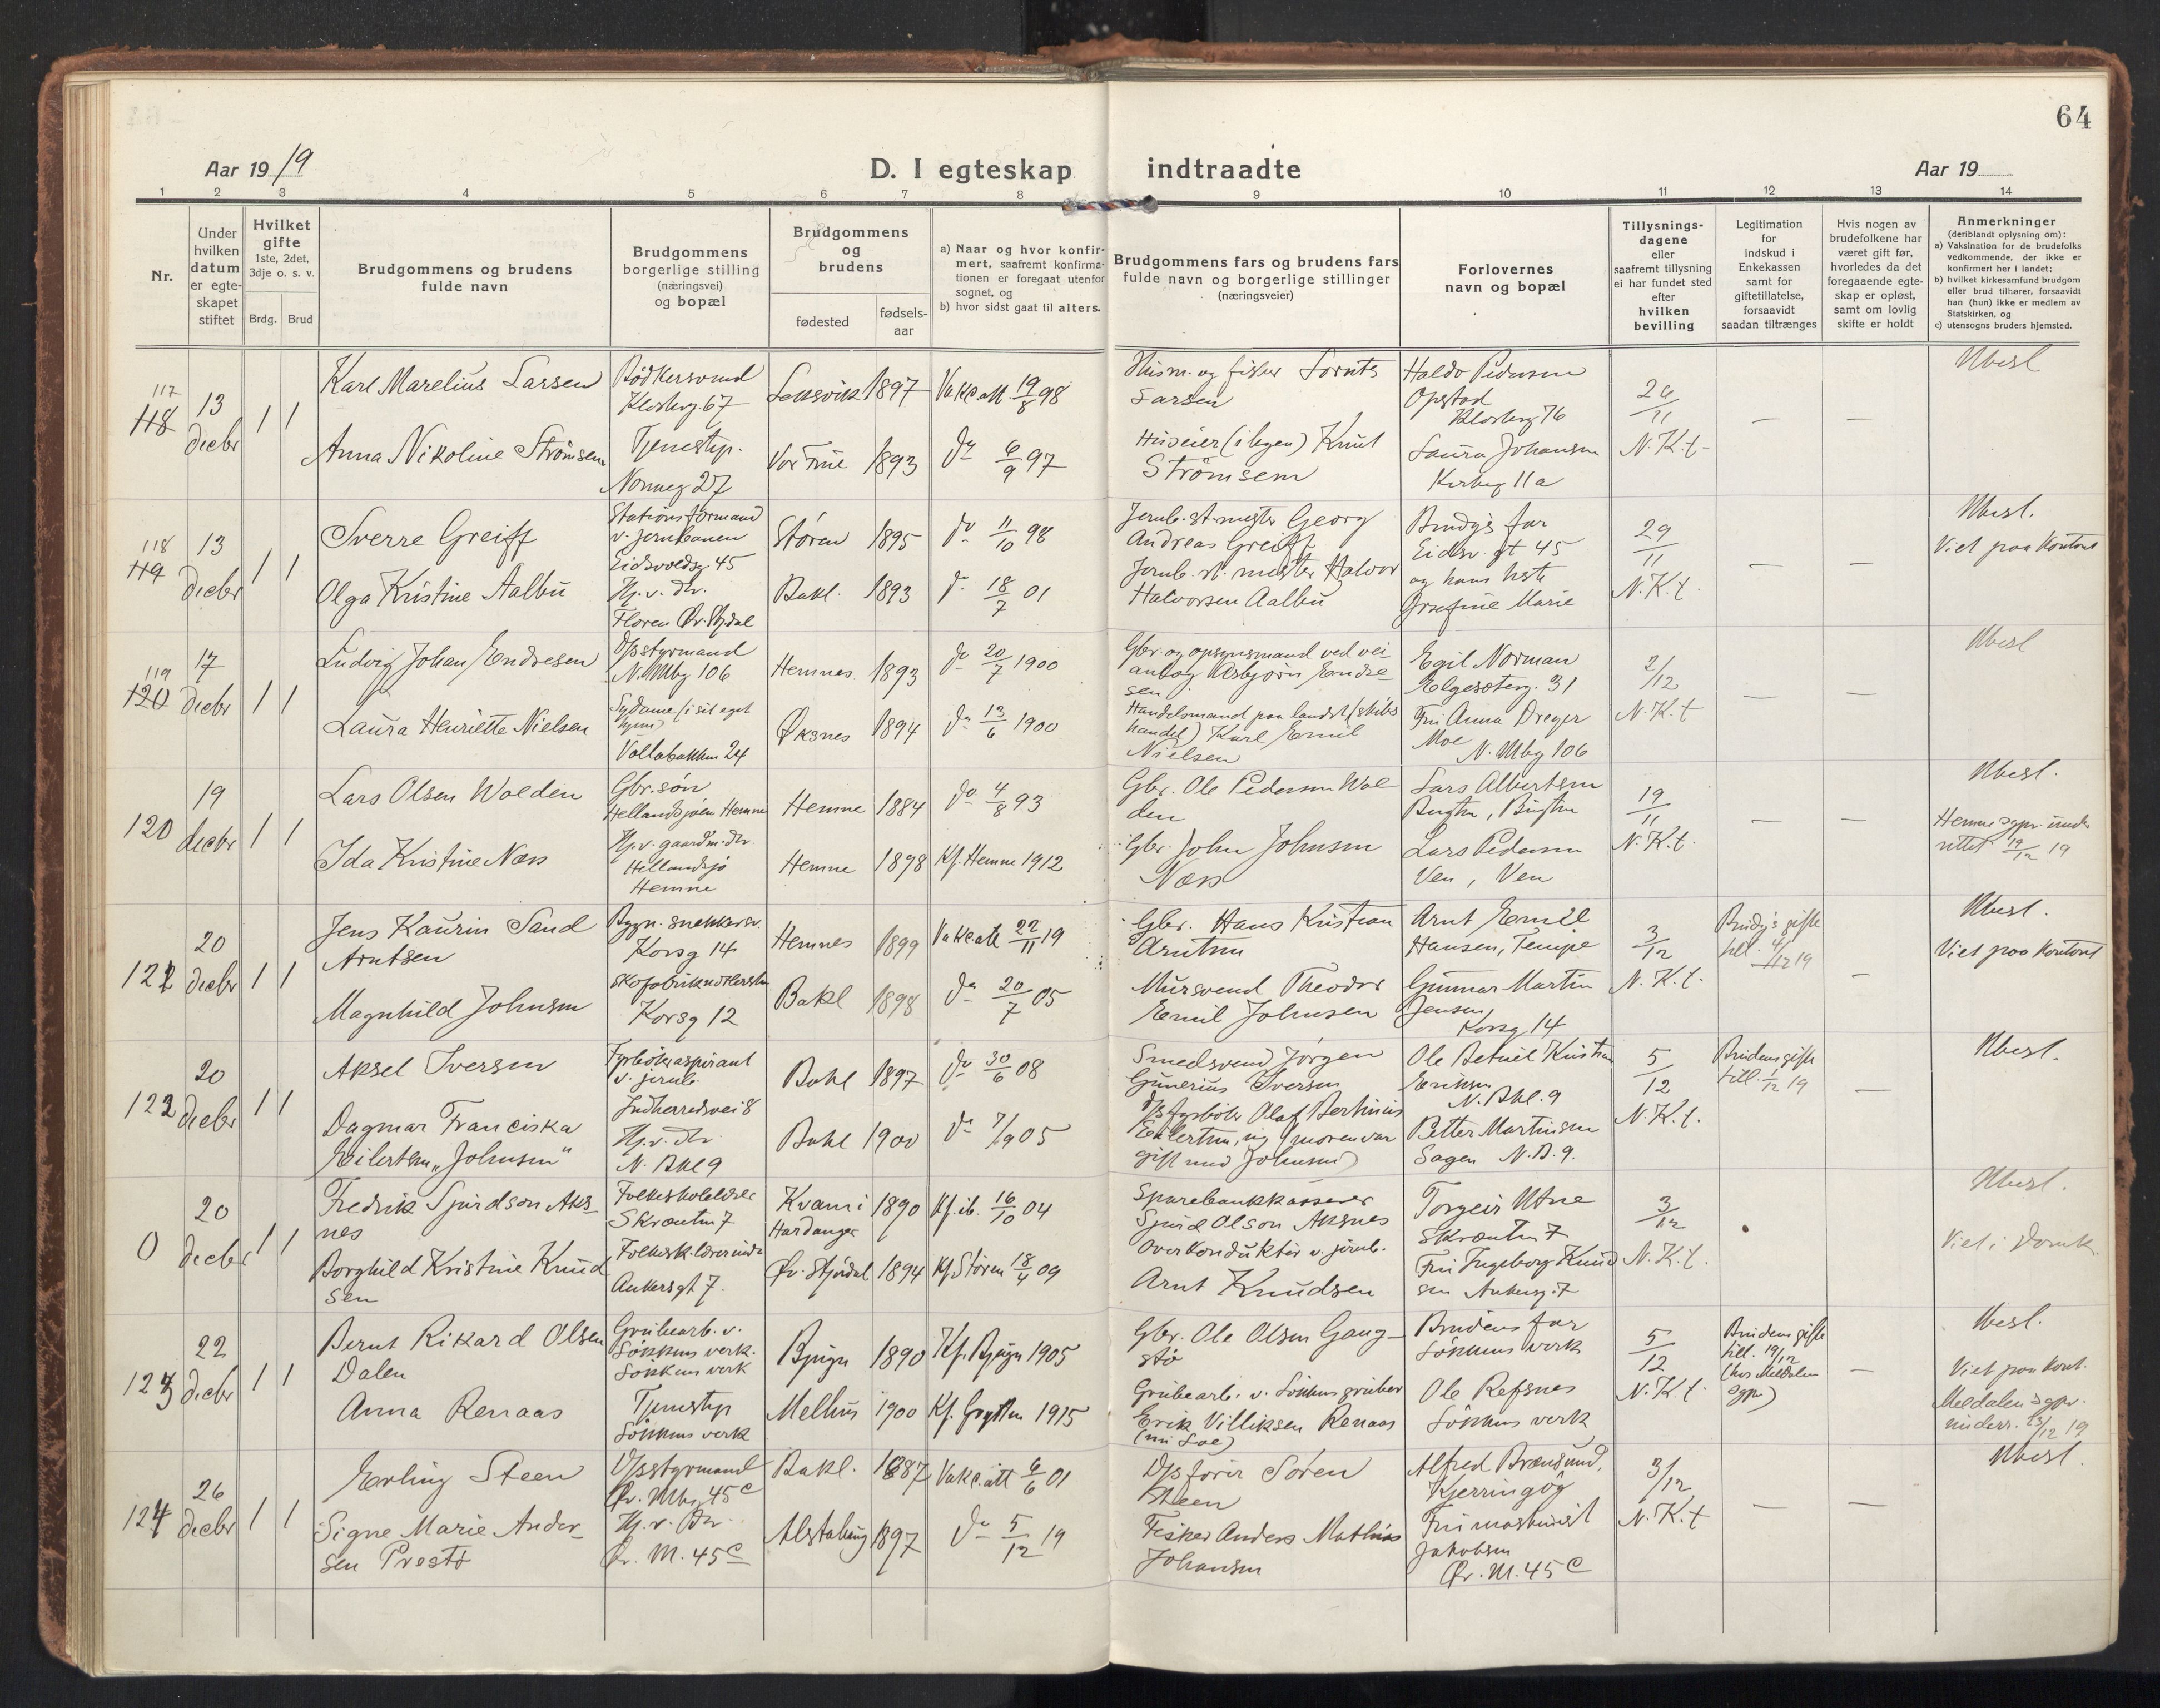 64
Aar 19 19
D. I egteskap indtraadte
Aar 19
1 2 3 4 5 6 7 8 9 10 11 12 13 14
Nr.
Under hvilken datum er egteskapet stiftet
Hvilket gifte 1ste, 2det, 3dje o. s. v.
Brdg. Brud
Brudgommens og brudens fulde navn
Brudgommens borgerlige stilling (næringsvei) og bopæl
Brudgommens og brudens
fødested
fødsels-aar
a) Naar og hvor konfirmert, saafremt konfirmationen er foregaat utenfor sognet, og
b) hvor sidst gaat til alters.
Brudgommens fars og brudens fars fulde navn og borgerlige stillinger (næringsveier)
Forlovernes navn og bopæl
Tillysningsdagene eller saafremt tillysning ei har fundet sted efter hvilken bevilling
Legitimation for indskud i Enkekassen samt for giftetillatelse, forsaavidt saadan tiltrænges
Hvis nogen av brudefolkene har været gift før, hvorledes da det foregaaende egteskap er opløst, samt om lovlig skifte er holdt
Anmerkninger (deriblandt oplysning om):
a) Vaksination for de brudefolks vedkommende, der ikke er konfirmert her i landet;
b) hvilket kirkesamfund brudgom eller brud tilhører, forsaavidt han (hun) ikke er medlem av Statskirken, og
c) utensogns bruders hjemsted.
117
118
13 decbr 1 1
Karl Marelius Larsen
Bødkersvend
Klosterg. 67
Leksvik 1897 Vakc att 19/8 98
Larsen
Haldo Pedersen
Opstad
Klosterg 76
11
N.K.t.
Anna Nikoline Strømsem
Tjenestep.
Nonneg 27
Vor Frue 1893 do 6/9 97
Huseier (i byen) Knut
Strømsem
Laura Johansen
Kirkeg 11a
118
119
13 decbr 1 1
Sverre Greiff
Stationsformand
v. jernbanen
Eidsvoldsg 45
Støren 1895 do 11/10 98
Jernb. st. mester Georg
Andreas Greiff
Brudg's far
Eidsv. gt 45
og hans hustr
Josefine Marie
29/11
N.K.t.
Viet paa kontoret
Olga Kristine Aalbu
Hj. v. dtr.
Floren Øv. Stjdal
Bakl. 1893 do 18/7 01
Jernb. st. mester Halvor
Halvorsen Aalbu
119
120
17 decbr 1 1
Ludvig Johan Endresen
D/s styrmand
N. Mbg 106
Hemnes 1893 do 20/7 1900
Gbr. og opsynsmand ved vei
anlæg Asbjørn Endre-
sen
Egil Norman
Elgesæterg. 31
2/12
N.K.t
Laura Henriette Nielsen
Sydame (i sit eget
hjem)
Vollabakken 24
Øksnes 1894 do 13/6 1900
Handelsmand paa landet (skibs
handel) Karl Emil
Nielsen
Fru Anna Dreyer
Moe
N. Mbg 106
19 decbr
120 1 1
Lars Olsen Wolden
Gbr. søn
Hellandsjøen Hemne
Hemne 1884 do 4/8 93
Gbr. Ole Pedersen Wol
den
Lars Albertsen
19/11
N.K.t.
Hemne sgpr. under
rettet 19/12 19
Ida Kristine Næss
Hj. v. gaardm. dtr.
Hellandsjø
Hemne
Hemne 1898 Kf. Hemne 1912
Gbr. John Johnsen
Næss
Lars Pedersen
Ven, Ven
20
121 decbr 1 1
Jens Kaurin Sand
Arntsen
Bygn. snekkersv.
Korsg 14
Hemnes 1899 Vakc att 22/11 19
Gbr. Hans Kristian
Arntsen
Arnt Emil
Hansen, Tempe
3/12
N.K.t.
Brudg's gifte
till. 4/12 19
Viet paa kontoret
Magnhild Johnsen
Korsg 12
Bakl 1898 do 20/7 05
Mursvend Theodor
Emil Johnsen
Gunnar Martin
Jensen
Korsg 14
20
122 decbr 1 1
Aksel Iversen
Fyrbøteraspirant
v. jernb.
Indherredsvei 8
Bakl 1897 do 30/6 08
Smedsvend Jørgen
Gunerius Iversen
Ole Betuel Kristian
Eriksen
N. Bkl. 9
5/12
N.K.t.
Brudens gifte
till. 1/12 19
Dagmar Franciska
Eilertsen "Johnsen"
Hj. v. dtr
N. Bkl 9
Bakl 1900 do 7/9 05
D/s fyrbøter Olaf Bertinius
Eilertsen, ug (moren var
gift med Johnsen)
Petter Martinsen
Sagen N. B. 9.
20
0 decbr 1 1
Fredrik Sjurdson Aks-
nes
Folkeskolelærer
Skrænten 7
Kvam i
Hardanger
1890 Kf. ib. 16/10 04
Sparebankkasserer
Sjurd Olson Aksnes
Torgeir Utne
Skrænten 7
3/12
N.K.t.
Viet i Domk.
Borghild Kristine Knud
sen
Folkesk. lærerinde
Ankersgt 7.
Øv. Stjørdal 1894 Kf. Støren 18/4 09
Overkonduktør v. jernb.
Arnt Knudsen
Fru Ingeborg Knud
sen Ankersg. 7
22
123 decbr 1 1
Bernt Rikard Olsen
Dalen
Grubearb. v.
Løkkens verk.
Løkkens verk
Bjugn 1890 Kf. Bjugn 1905
Gbr. Ole Olsen Gang-
stø
Brudens far
Løkkens verk
5/12
N.K.t.
Brudens gifte
till. 19/12
(hos Meldalen
sgpr)
Viet paa kont.
Meldalen sgpr.
underr. 23/12 19
Anna Renaas
Tjenestep
Løkkens verk
Melhus 1900 Kf. Grytten 1915
Grubearb. v. Løkkens gruber
Erik Villiksen Renaas
Ole Refsnes
Løkkens verk
26
124 decbr 1 1
Erling Steen
D/s styrmand
Øv. Mbg 45 c
Bakl. 1887 Vakc. att 6/6 01
D/s fører Søren
Steen
Alfred Brænsund,
Kjerringøy
3/12
N.K.t
Signe Marie Ander-
sen Prestø
Hj. v. Dtr.
Øv. M. 45 c
Alstahaug 1897 do 5/12 19
Fisker Anders Mathias
Johansen
Fru maskinist
Jakobsen
Øv. M. 45 c